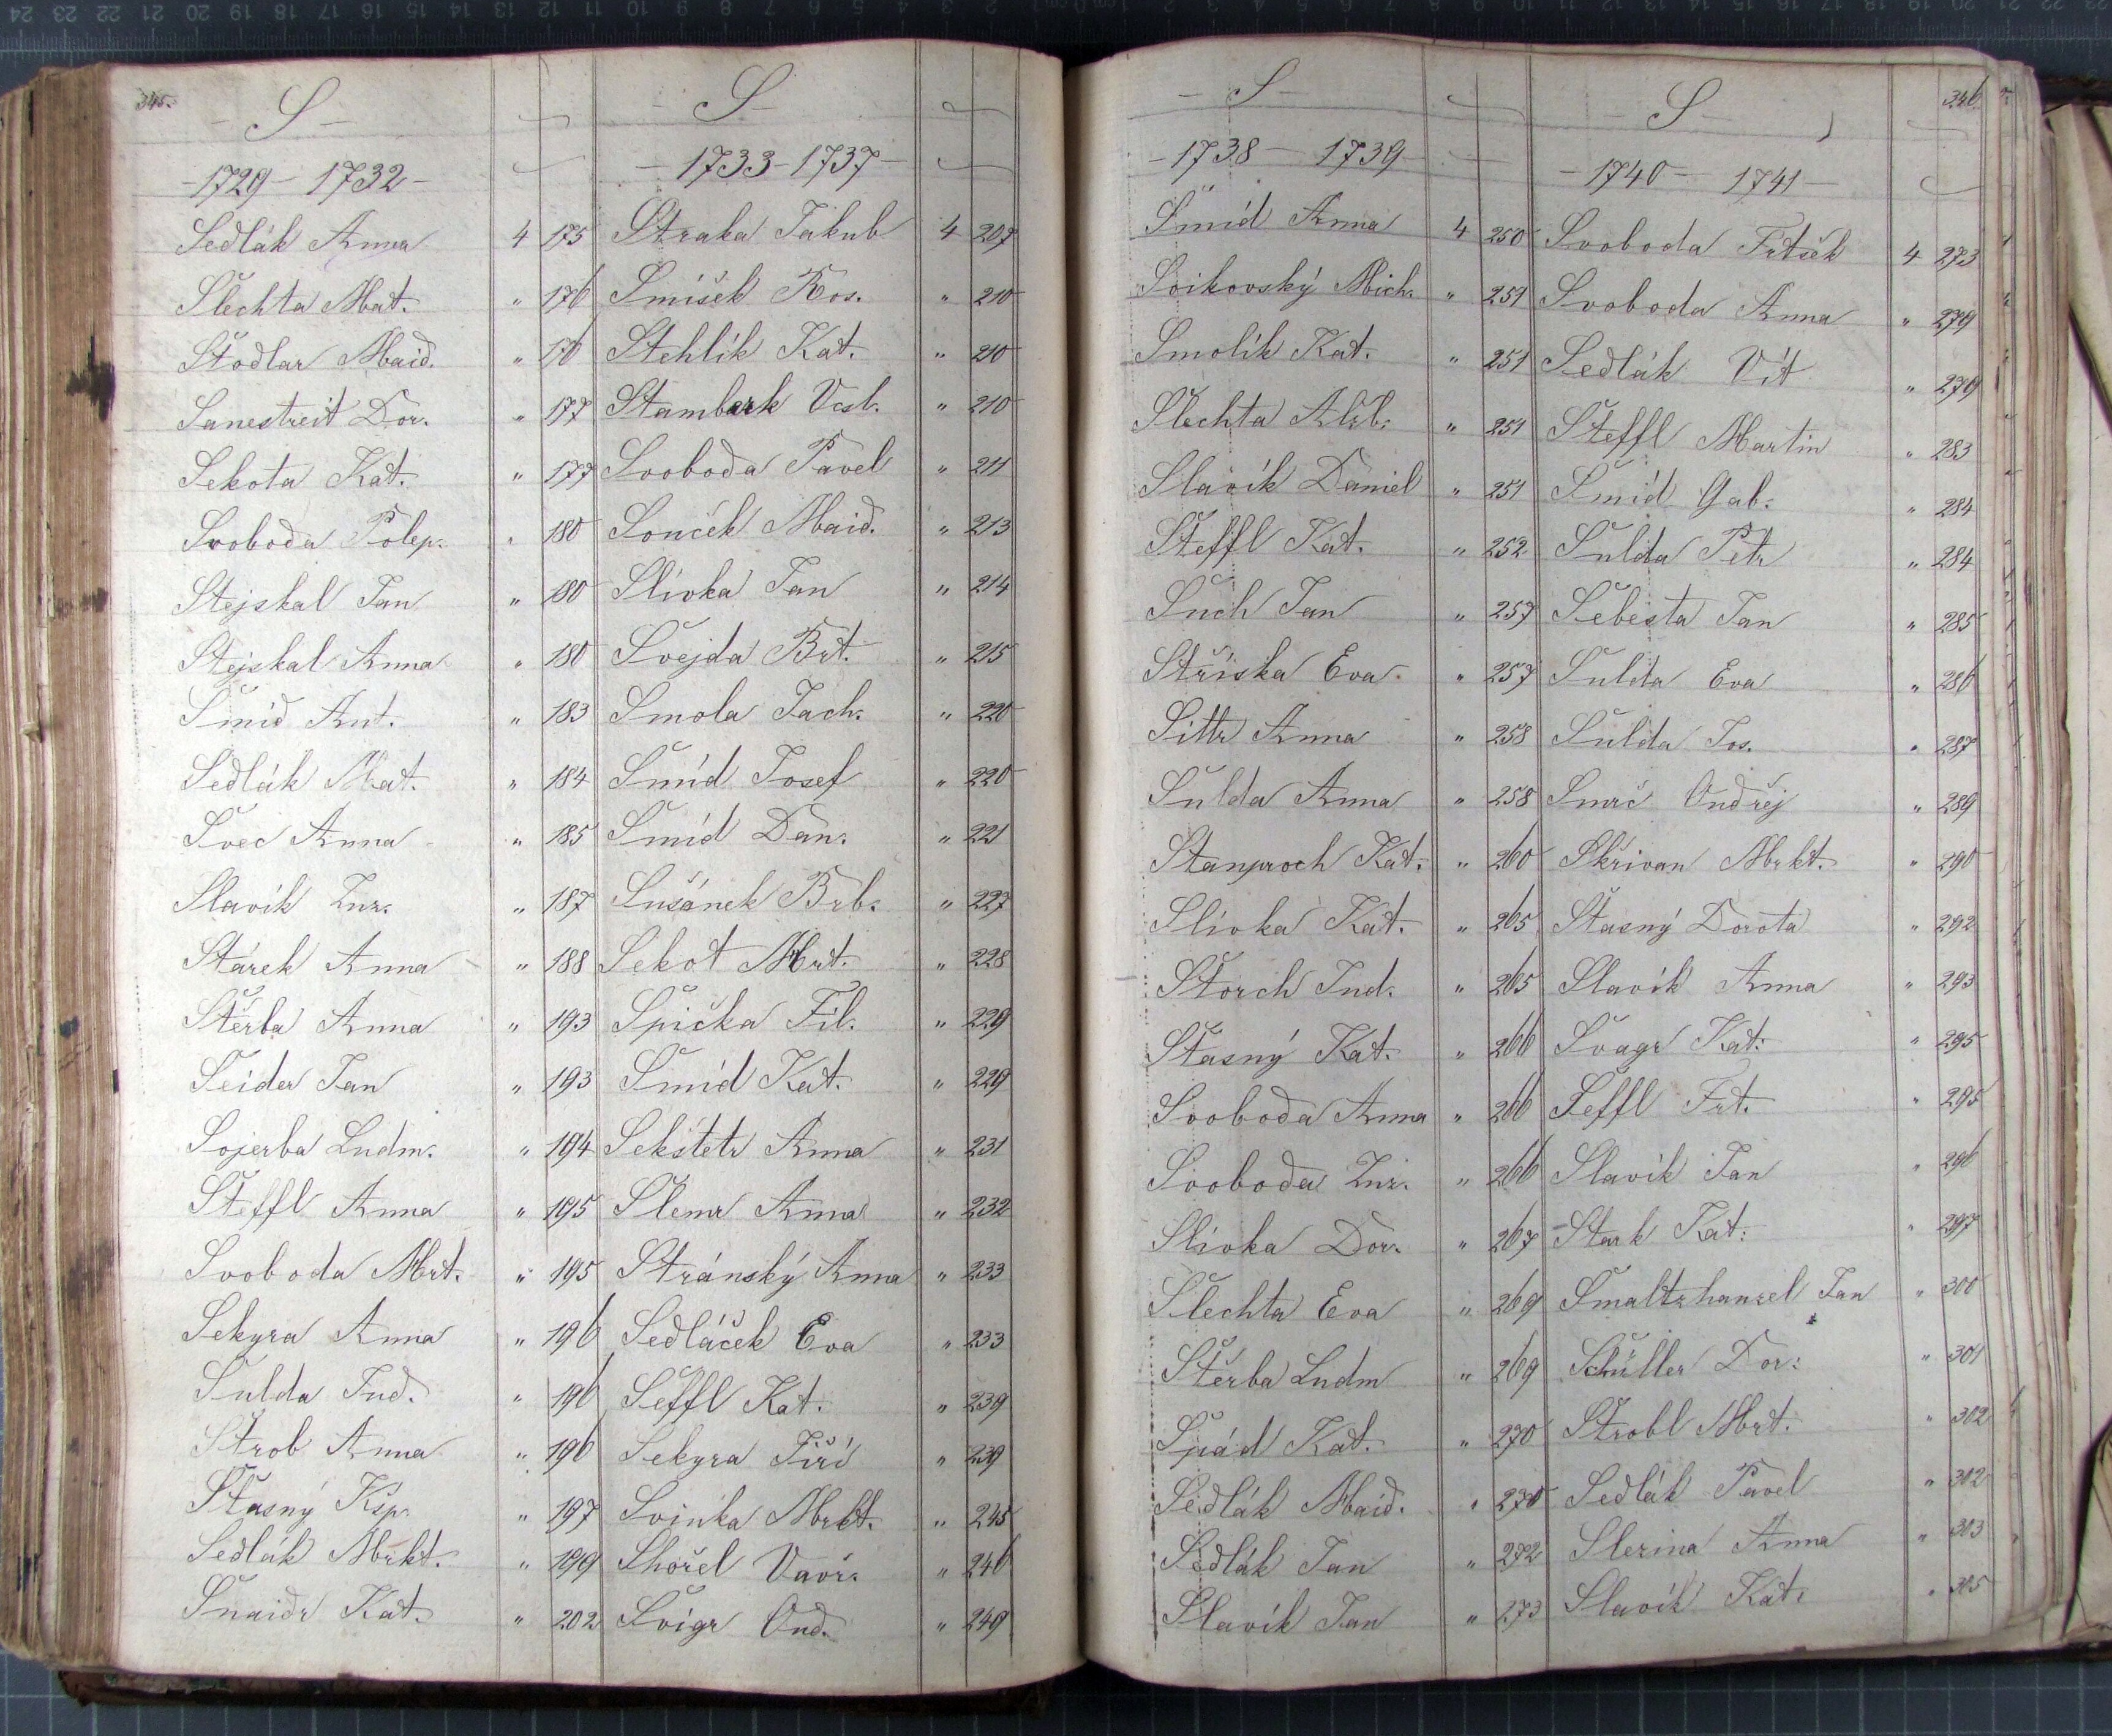 345.
S
1729 – 1732
Sedlák Anna 4 175
Šlechta Mat. " 176
Štodlar Maid. " 176
Sanestreit Dor. " 177
Sekota Kat. " 177
Svoboda Polep. " 180
Stejskal Jan " 180
Stejskal Anna " 180
Šmid Ant. " 183
Sedlák Mat. " 184
Švec Anna " 185
Slavík Znz. " 187
Stárek Anna " 188
Štěrba Anna " 193
Šeider Jan " 193
Sojerba Ludm. " 194
Šteffl Anna " 195
Svoboda Mrt. " 195
Sekyra Anna " 196
Šulda Jud. " 196
Štrob Anna " 196
Štasný Ksp. " 197
Sedlák Mrkt. " 199
Šnaidr Kat. " 202
S
1733 – 1737
Straka Jakub 4 207
Smíšek Ros. " 210
Stehlík Kat. " 210
Stamberk Vcsl. " 210
Svoboda Pavel " 211
Souček Maid. " 213
Slivka Jan " 214
Švejda Brt. " 215
Smola Jach. " 220
Šmíd Josef " 220
Šmíd Dan. " 221
Sušánek Brb. " 227
Sekot Mrt. " 228
Špička Fil. " 229
Šmíd Kat. " 229
Sekštetr Anna " 231
Šlemr Anna " 232
Stránský Anna " 233
Sedláček Eva " 233
Šeffl Kat. " 239
Sekyra Jiří " 239
Svinka Mrkt. " 245
Shořel Vavř. " 246
Švigr Ond. " 249
S
1738 – 1739
Šmíd Anna 4 250
Svikovský Mich. " 251
Smolík Kat. " 251
Šlechta Alžb. " 251
Slavík Daniel " 251
Šteffl Kat. " 252
Such Jan " 257
Stříska Eva " 257
Sittr Anna " 258
Šulda Anna " 258
Stanproch Kat. " 260
Slivka Kat. " 265
Štorch Jud. " 265
Štasný Kat. " 266
Svoboda Anna " 266
Svoboda Znz. " 266
Slivka Dor. " 267
Šlechta Eva " 269
Štěrba Ludm " 269
Špád Kat. " 270
Sedlák Maid. " 270
Sedlák Jan " 272
Slavík Jan " 273
346
S
1740 – 1741
Svoboda Frtšek 4 273
Svoboda Anna " 279
Sedlák Vít " 279
Šteffl Martin " 283
Šmíd Gab. " 284
Šulda Petr " 284
Šebesta Jan " 285
Šulda Eva " 286
Šulda Jos. " 287
Smrč Ondřej " 289
Skřivan Mrkt. " 290
Štasný Dorota " 292
Slavík Anna " 293
Švagr Kat. " 295
Šeffl Frt. " 295
Slavík Jan " 296
Stark Kat. " 297
Šmaltzhanzel Jan " 300
Schüller Dor. " 301
Štrobl Mrt. " 302
Sedlák Pavel " 302
Slezina Anna " 303
Slavík Kat. " 305